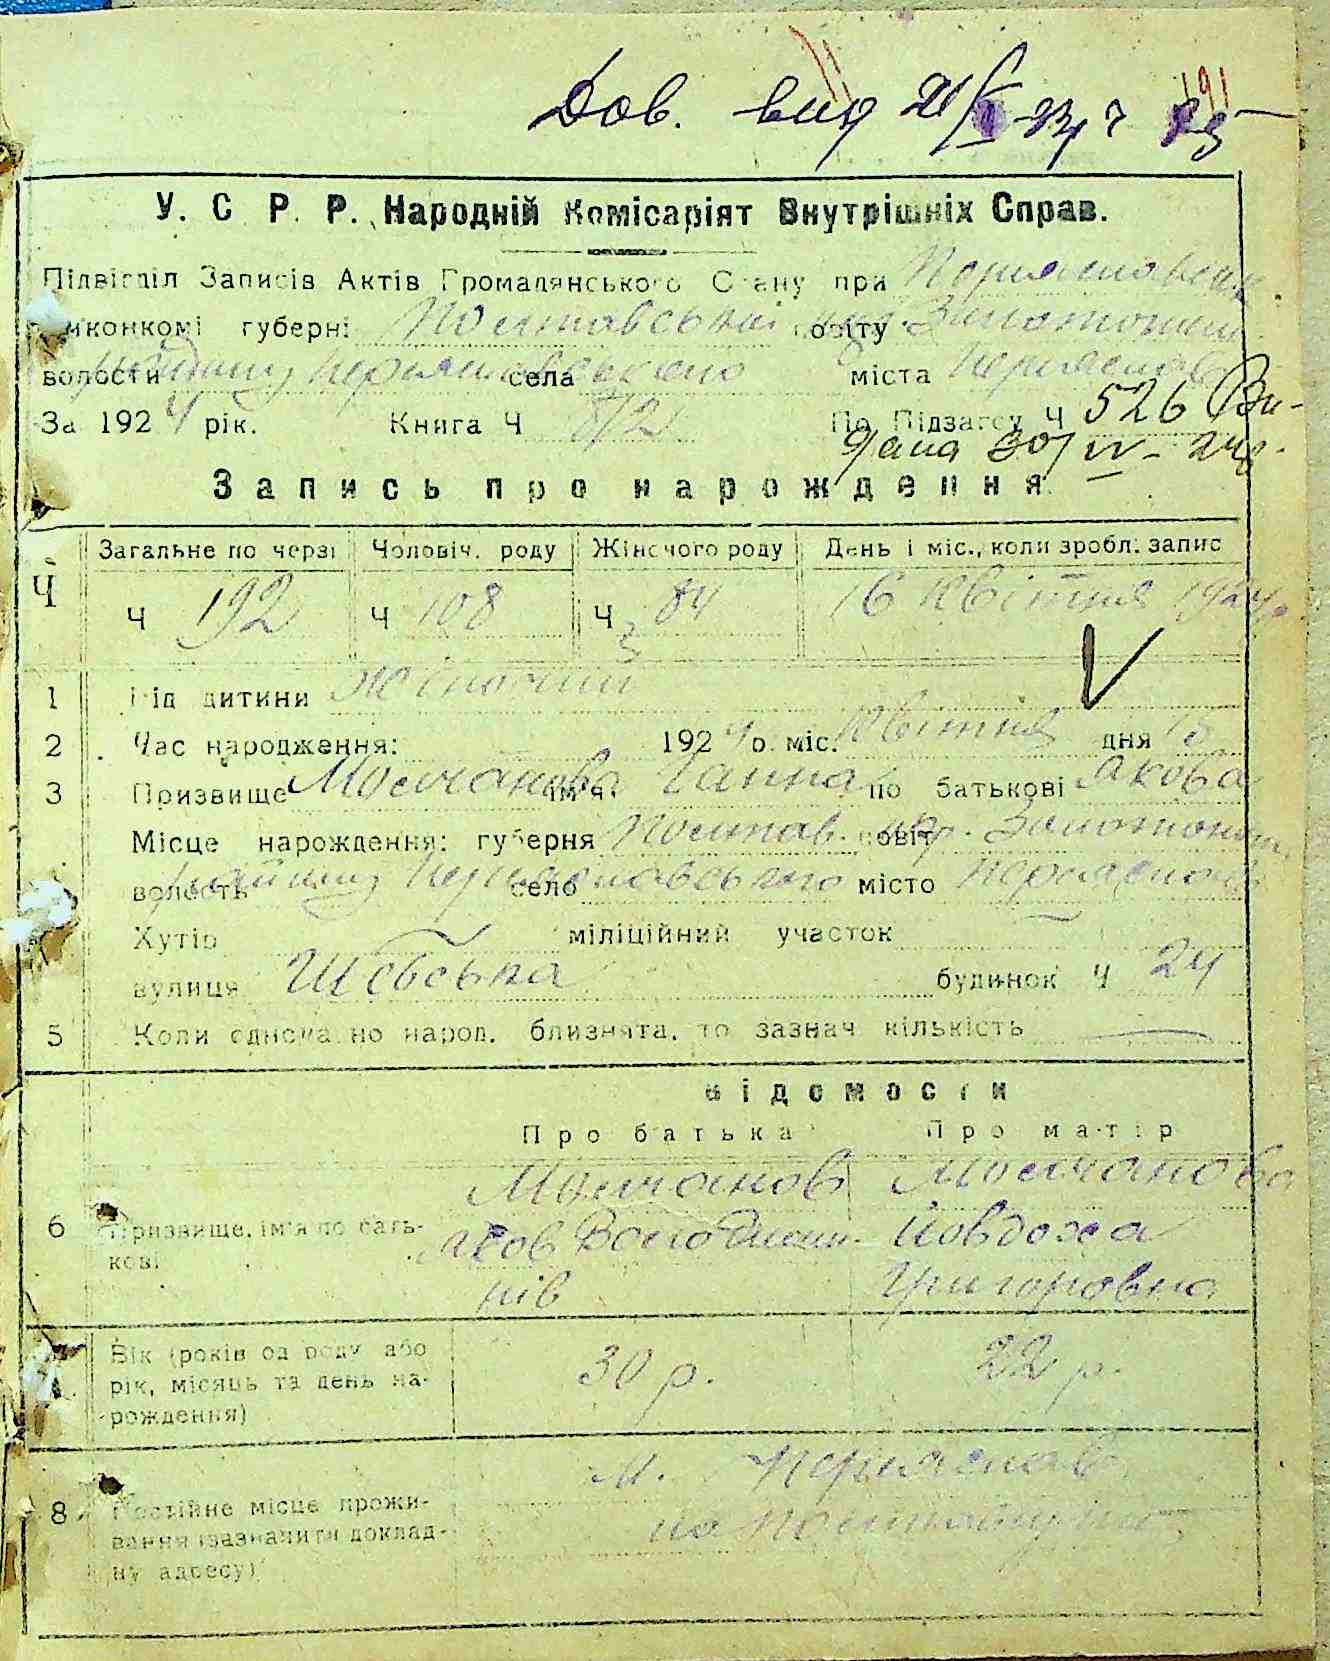 Дов. вид 21/V
191
У. С Р. Р. Народній Комісаріят Внутрішніх Справ.
Підвідділ Записів Актів Громадянського Стану при Переяславськ
викконкомі губерні Полтавській повіту окр. Золотоноши
волости району Переяславського села міста Переяслав
За 1924 рік. Книга Ч 8/2 По Підзагсу Ч 526 Ви-
дана 30/IV - 24р.
Запись про нарождення
Ч Загальне по черзі Чоловіч. роду Жіночого роду День і міс., коли зробл. запис
Ч 192 Ч 108 Ч 84 16 Квітня 1924р.
1 Рід дитини Жіночий
2 Час народження: 1924 р. міс. Квітня дня 15
3 Призвище Молчанова ім'я Ганна по батькові Якова
Місце нарождення: губерня Полтав. повіт окр. Золотонош.
волость району Переяславського село місто Переяслов
Хутір міліційний участок
вулиця Шевська будинок Ч 24
5 Коли одночасно народ. близнята, то зазнач кількість
Відомости
Про батька Про матір
Молчанов Молчанова
6 Призвище, ім'я по бать- Яков Володими- Йовдоха
кові рів Григоровна
7 Вік (років од роду або 30 р. 22 р.
рік, місяць та день на-
рождення)
м. Переяслав
8 Постійне місце прожи-
вання (зазначити доклад-
ну адресу)